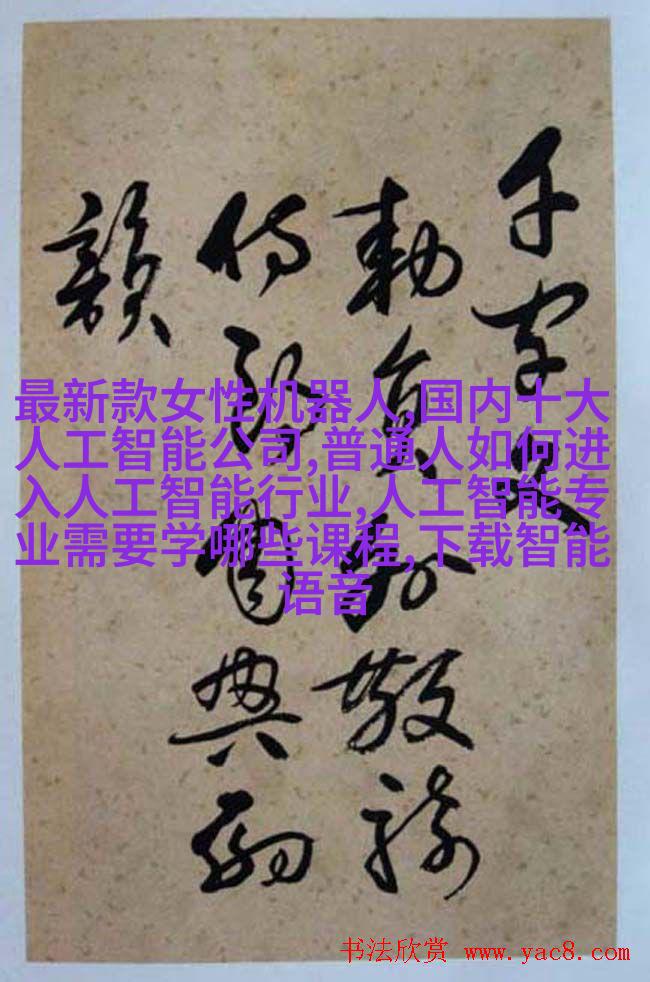 千字文
勅員外散騎
侍郎周興嗣
韻
最新款女性机器人,国内十大
人工智能公司,普通人如何进
入人工智能行业,人工智能专
业需要学哪些课程,下载智能
语音
书法欣赏 www.yac8.com